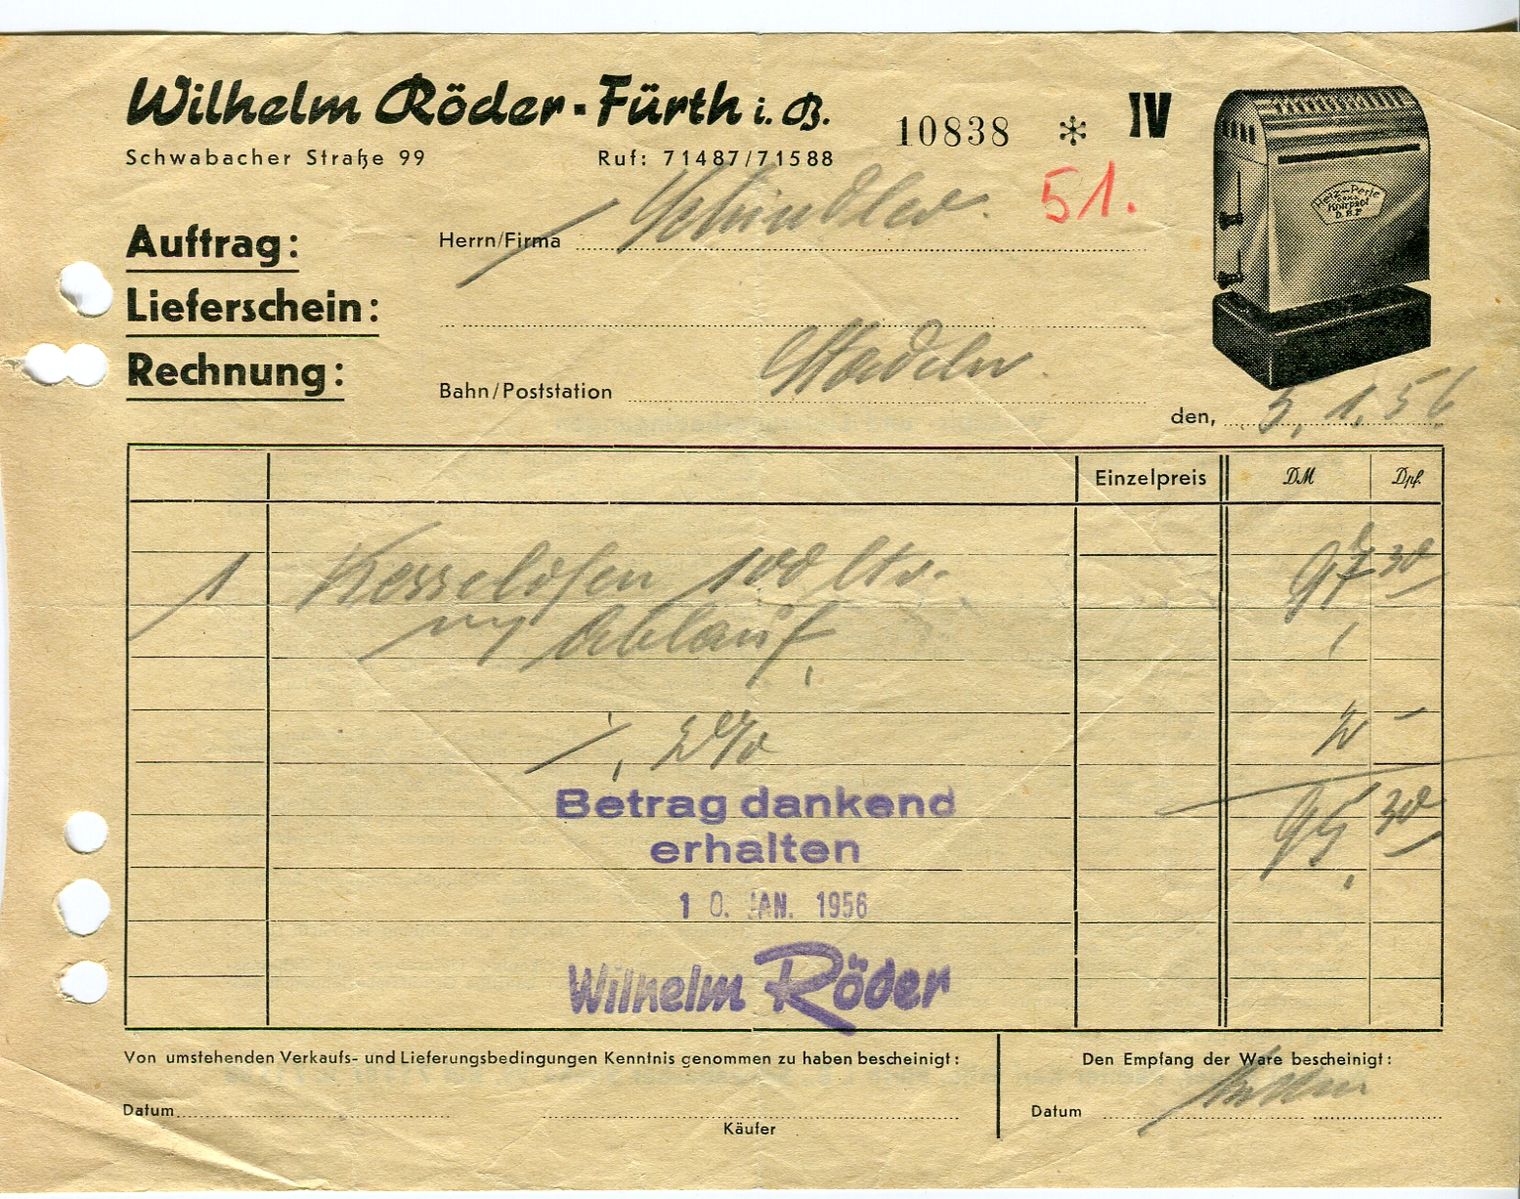 Wilhelm Röder - Fürth i. B.
10838 * IV
Schwabacher Straße 99 Ruf: 71487/71588
51.
Heiz-Perle
D.B.P.
Auftrag:
Herrn/Firma Schindler.
Lieferschein:
Rechnung:
Bahn/Poststation Stadeln.
den, 5.1.56
Einzelpreis DM Dpf.
1 Kesselofen 100 ltr. 97 30
m/ Ablauf
./. 2% 2 –
95 30
Betrag dankend
erhalten
10. JAN. 1956
Wilhelm Röder
Von umstehenden Verkaufs- und Lieferungsbedingungen Kenntnis genommen zu haben bescheinigt:
Den Empfang der Ware bescheinigt:
Datum
Käufer
Datum